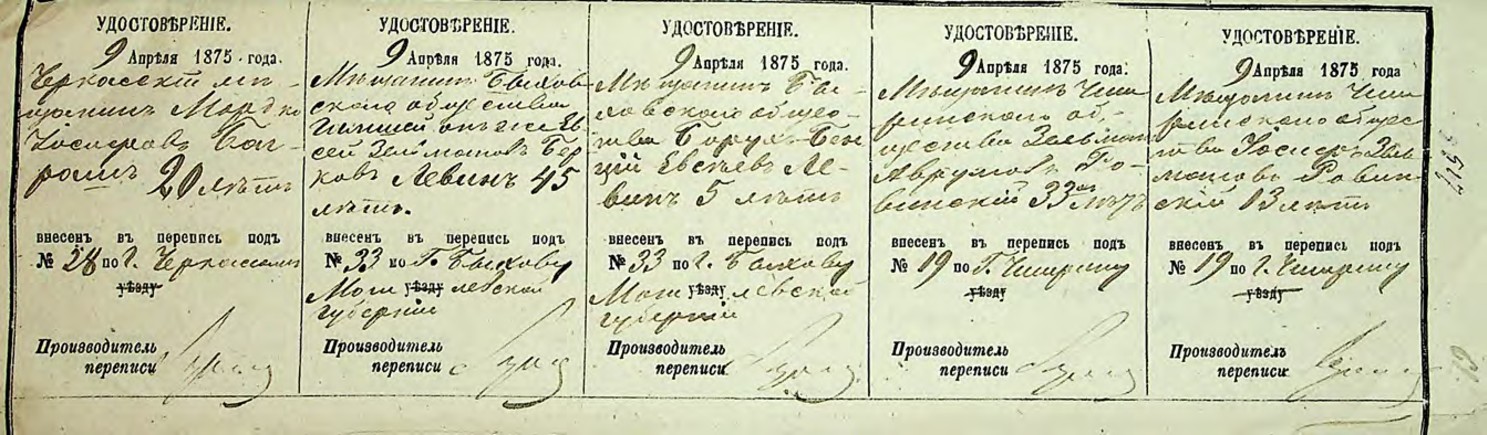 УДОСТОВѢРЕНІЕ.
9 Апрѣля 1875 года.
Черкасскій мѣ-
щанинъ Мордко
Іосифовъ Баг-
20 лѣтъ
внесенъ въ перепись подъ
№ 28 по г. Черкассамъ
уѣзду
Производитель
переписи
УДОСТОВѢРЕНІЕ.
9 Апрѣля 1875 года.
Мѣщанинъ Быхов
скаго общества
онъ же Ев
сей Зельмановъ Бер
ковъ Левинъ 45
лѣтъ.
внесенъ въ перепись подъ
№ 33 по Г. Быхову
Моги уѣзду левской
губерніи
Производитель
переписи
УДОСТОВѢРЕНІЕ.
9 Апрѣля 1875 года.
Мѣщанинъ Бы-
ховскаго общес-
тва Борухъ Бен
цій Евсѣевъ Ле-
винъ 5 лѣтъ
внесенъ въ перепись подъ
№ 33 по г. Быхову
Моги уѣзду левской
губерніи
Производитель
переписи
УДОСТОВѢРЕНІЕ.
9 Апрѣля 1875 года.
Мѣщанинъ Чиги
ринскаго об-
щества Зельман
Аврумовъ Ро-
винскій 33 лѣтъ
внесенъ въ перепись подъ
№ 19 по Г. Чигирину
уѣзду
Производитель
переписи
УДОСТОВѢРЕНІЕ.
9 Апрѣля 1875 года
Мѣщанинъ Чиги
ринскаго общес
тва Іосифъ Зель
мановъ Ровин
скій 13 лѣтъ
внесенъ въ перепись подъ
№ 19 по г. Чигирину
уѣзду
Производитель
переписи